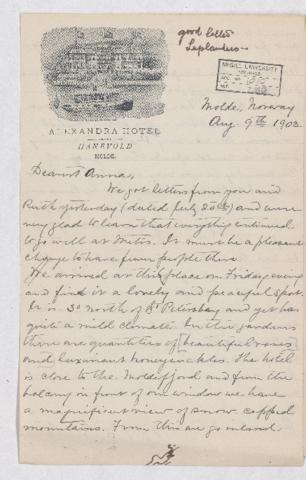 good letter
Laplanders
McGILL UNIVERSITY
ARCHIVES
ALEXANDRA HOTEL
DANEVOLD
MOLDE.
Molde, Norway
Aug. 9th 1903.
Dearest Anna,
We got letters from you and
Ruth yesterday (dated July 20th) and were
very glad to learn that everything continued
to go well at Metis. It must be a pleasant
change to have fewer people there.
We arrived at this place on Friday evening
and find it a lovely and peaceful spot.
It is so north of St Petersburg and yet has
quite a mild climate. In the gardens
there are quantities of beautiful roses
and luxuriant honeysuckles. The hotel
is close to the Moldefjord and from the
balcony in front of our window we have
a magnificent view of snow capped
mountains. From this we go inland